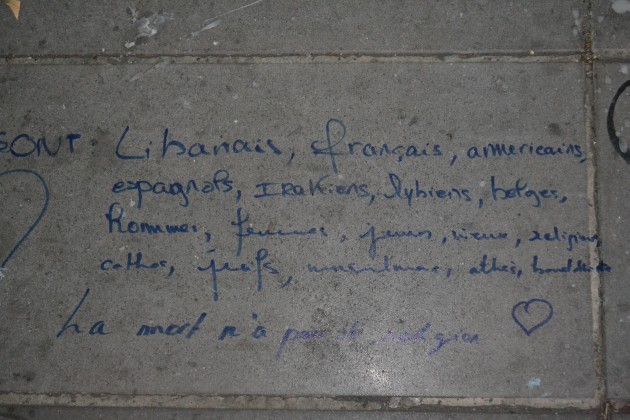 SONT Libanais, français, ammericains,
espagnols, IRAKiens, lybiens, belges,
hommes, femmes, jeunes, vieux, religion,
cathos, juifs, musulmans, athés, bouddhiste
La mort n'a pas de religion